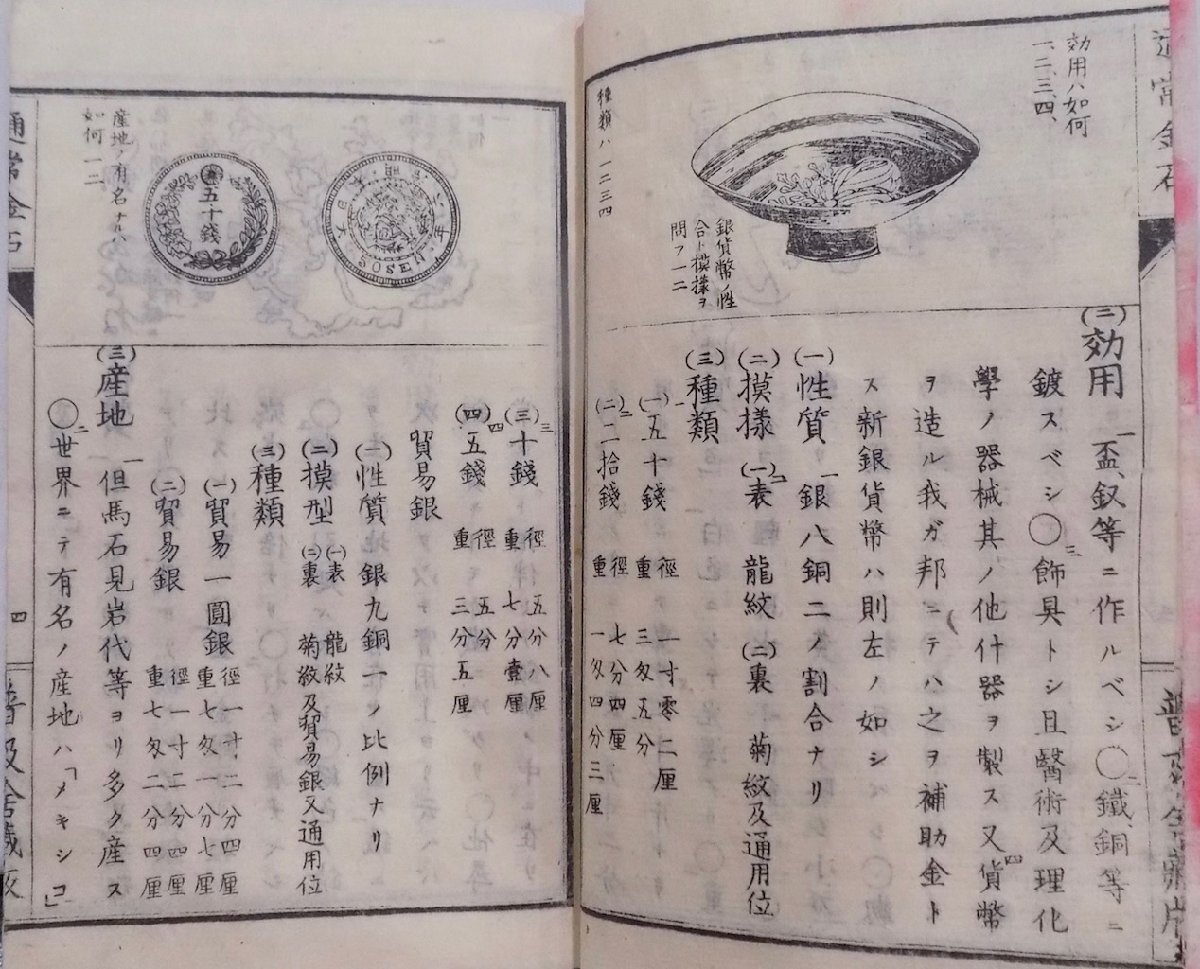 効用ハ如何
一、二、三、四、
銀貨幣ノ性
合ト摸様ヲ
問フ一二
種類ハ一二三四
(二)効用 一盃、釵等ニ作ルベシ〇二鐵、銅等ニ
鍍スベシ〇三飾具トシ且醫術及理化
學ノ器械其ノ他什器ヲ製ス又四貨幣
ヲ造ル我ガ邦ニテハ之ヲ補助金ト
ス新銀貨幣ハ則左ノ如シ
(一)性質 一銀八銅二ノ割合ナリ
(二)摸樣 (一)二表 龍紋 (二)裏 菊紋及通用位
(三)種類
(一)一五十錢 徑 一寸零二厘 重 三匁五分
(二)二二拾錢 徑 七分四厘 重 一匁四分三厘
(三)三十錢 徑 五分八厘 重 七分壹厘
(四)四五錢 徑 五分 重 三分五厘
貿易銀
(一)性質 銀九銅一ノ比例ナリ
(二)摸型 (一)表 龍紋 (二)裏 菊紋及貿易銀又通用位
(三)種類
(一)貿易一圓銀 徑一寸二分四厘 重七匁一分七厘
(二)貿易銀 徑一寸二分四厘 重七匁二分四厘
(三)産地 一但馬石見岩代等ヨリ多ク産ス
〇二世界ニテ有名ノ産地ハ「メキシコ」
産地ノ有名ナルハ
如何一二
五十錢
50 SEN
通常金石
四
普及舎藏版